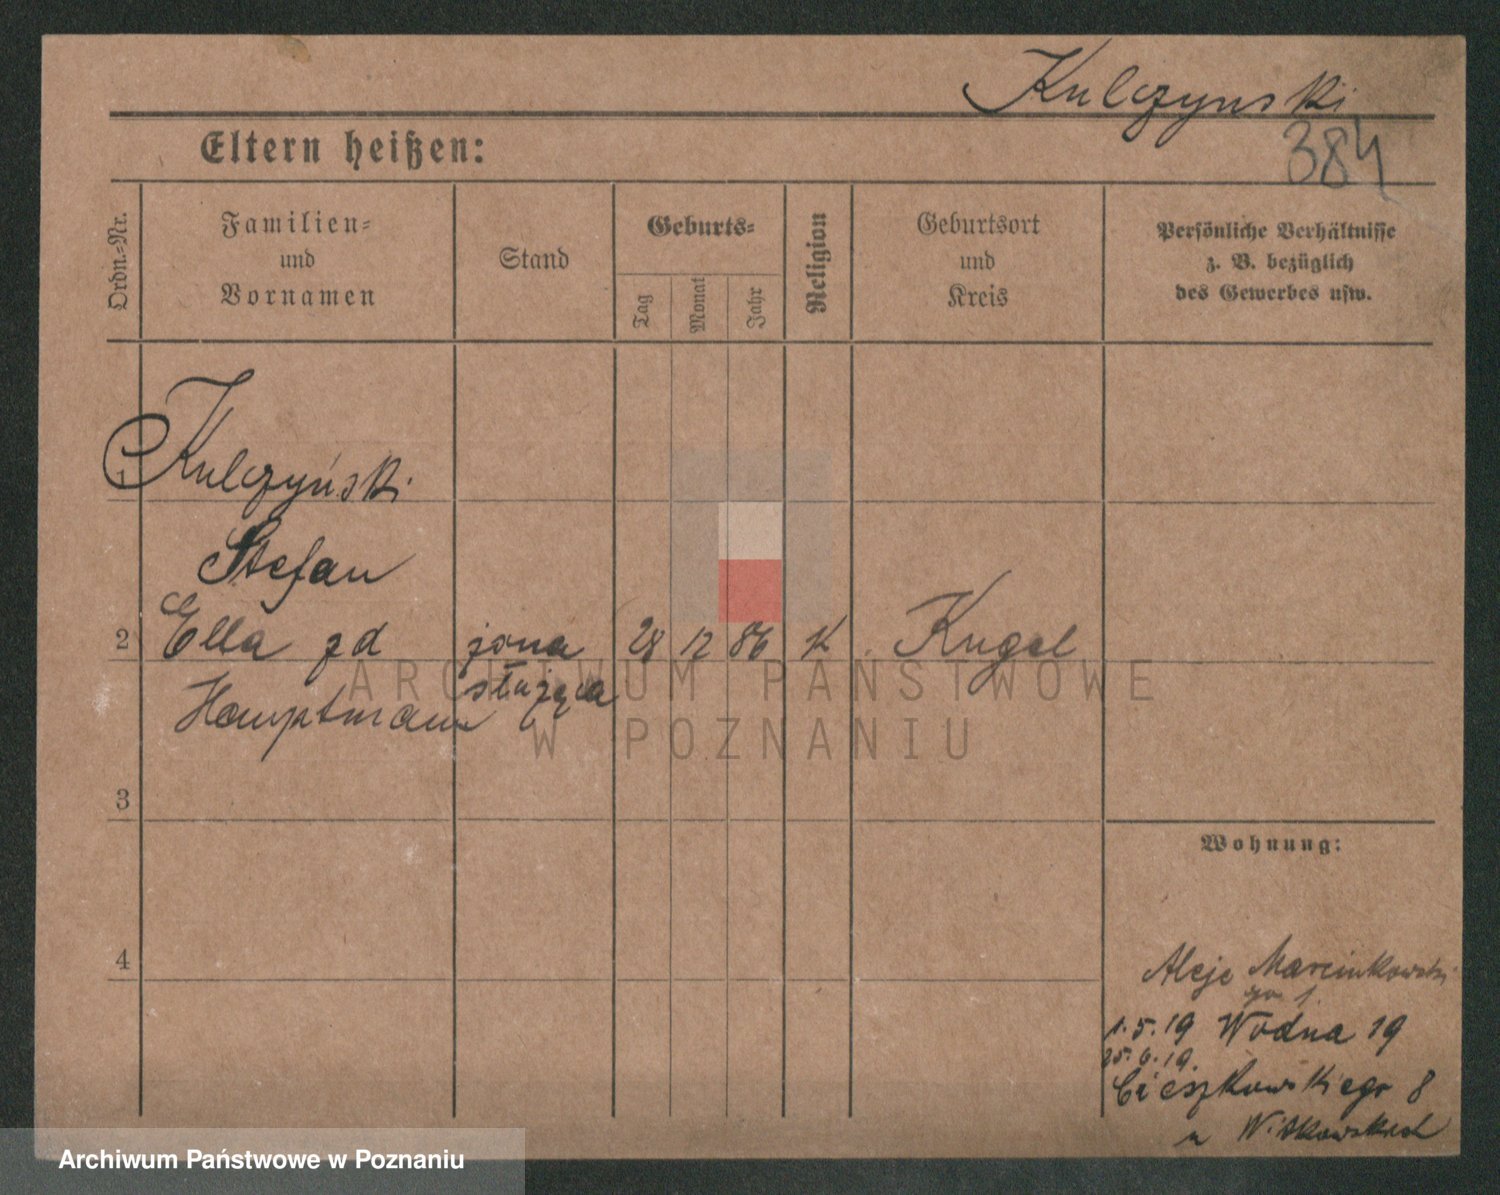 Kulczynski
384
Eltern heißen:
Ordn.-Nr.
Familien-
und
Vornamen
Stand
Geburts-
Tag
Monat
Jahr
Religion
Geburtsort
und
Kreis
Persönliche Verhältnisse
z. B. bezüglich
des Gewerbes usw.
1 Kulczyński
Stefan
2 Ella zd żona 28 12 86 K Kugel
Hauptmann służąca
3
4
Wohnung:
Aleje Marcinkowski
go 1.
1.5.19 Wodna 19
25.6.19.
Cieszkowskiego 8
u Witkowskich
ARCHIWUM PAŃSTWOWE
W POZNANIU
Archiwum Państwowe w Poznaniu